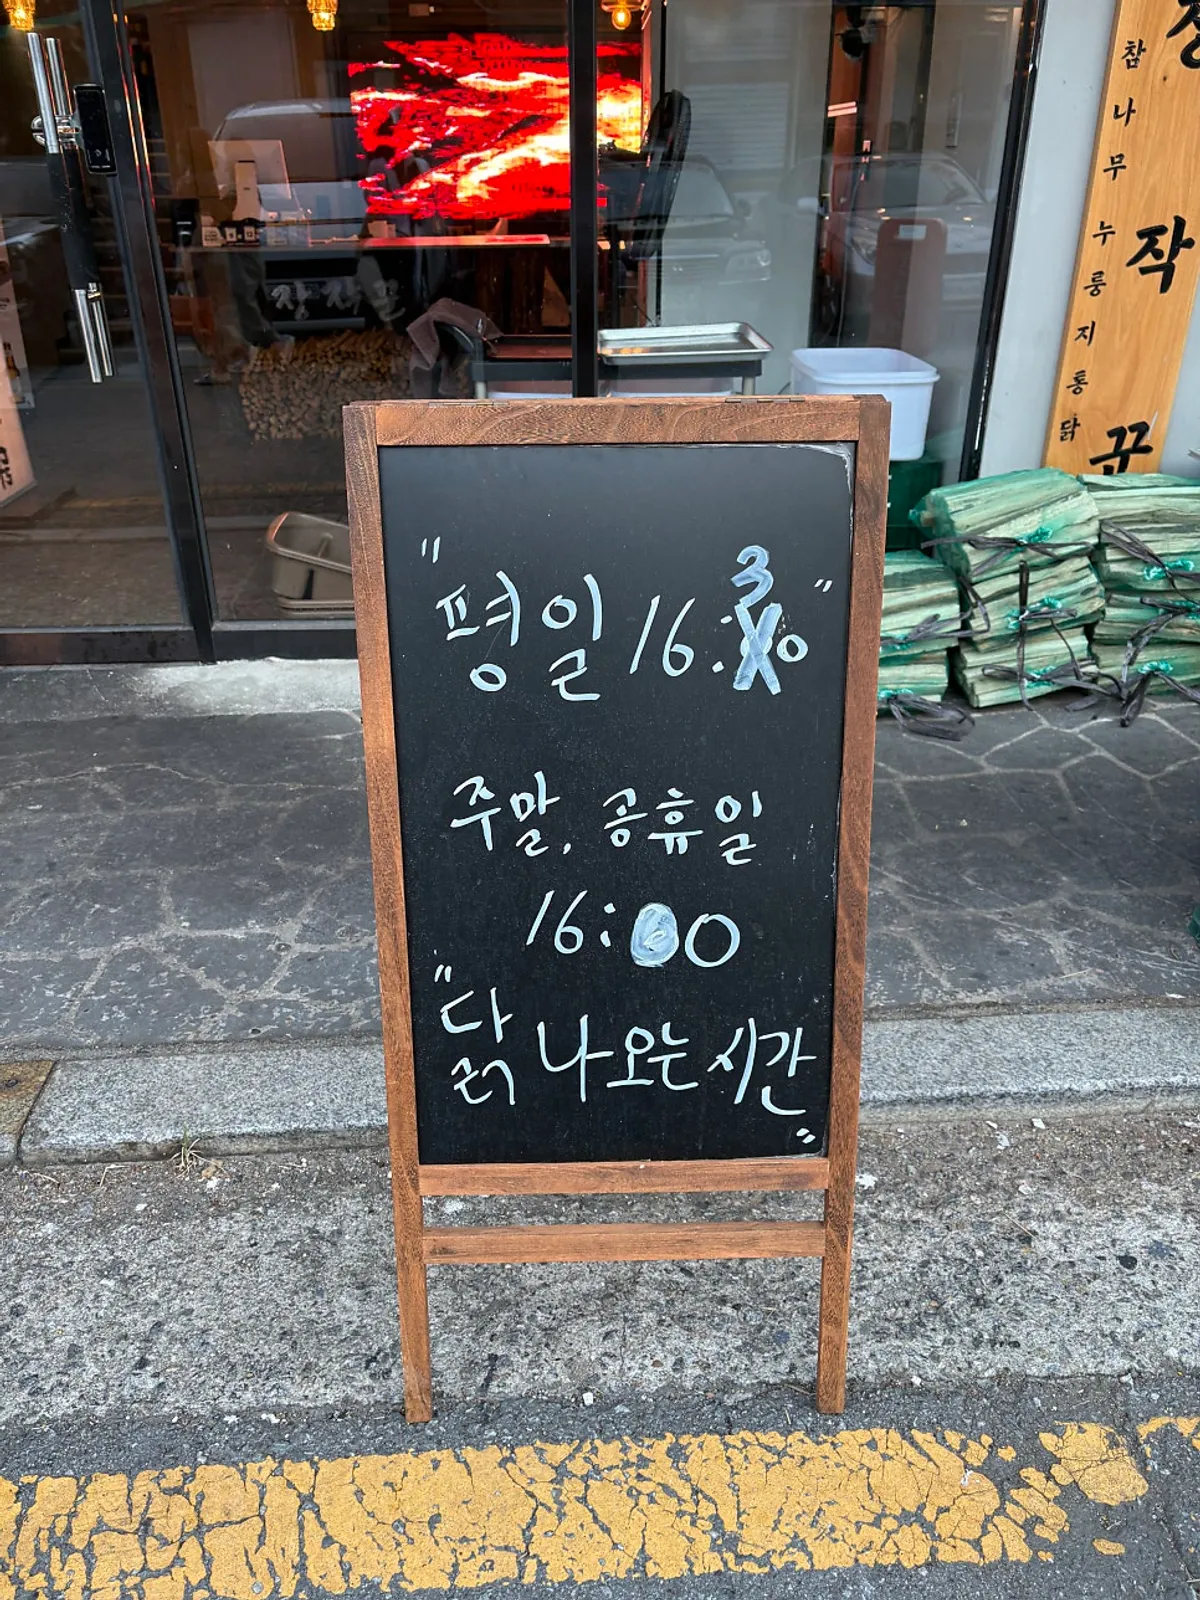 "평일 16:30"
주말, 공휴일
16:00
"닭 나오는 시간"
참나무 누룽지통닭
장작구
장작구